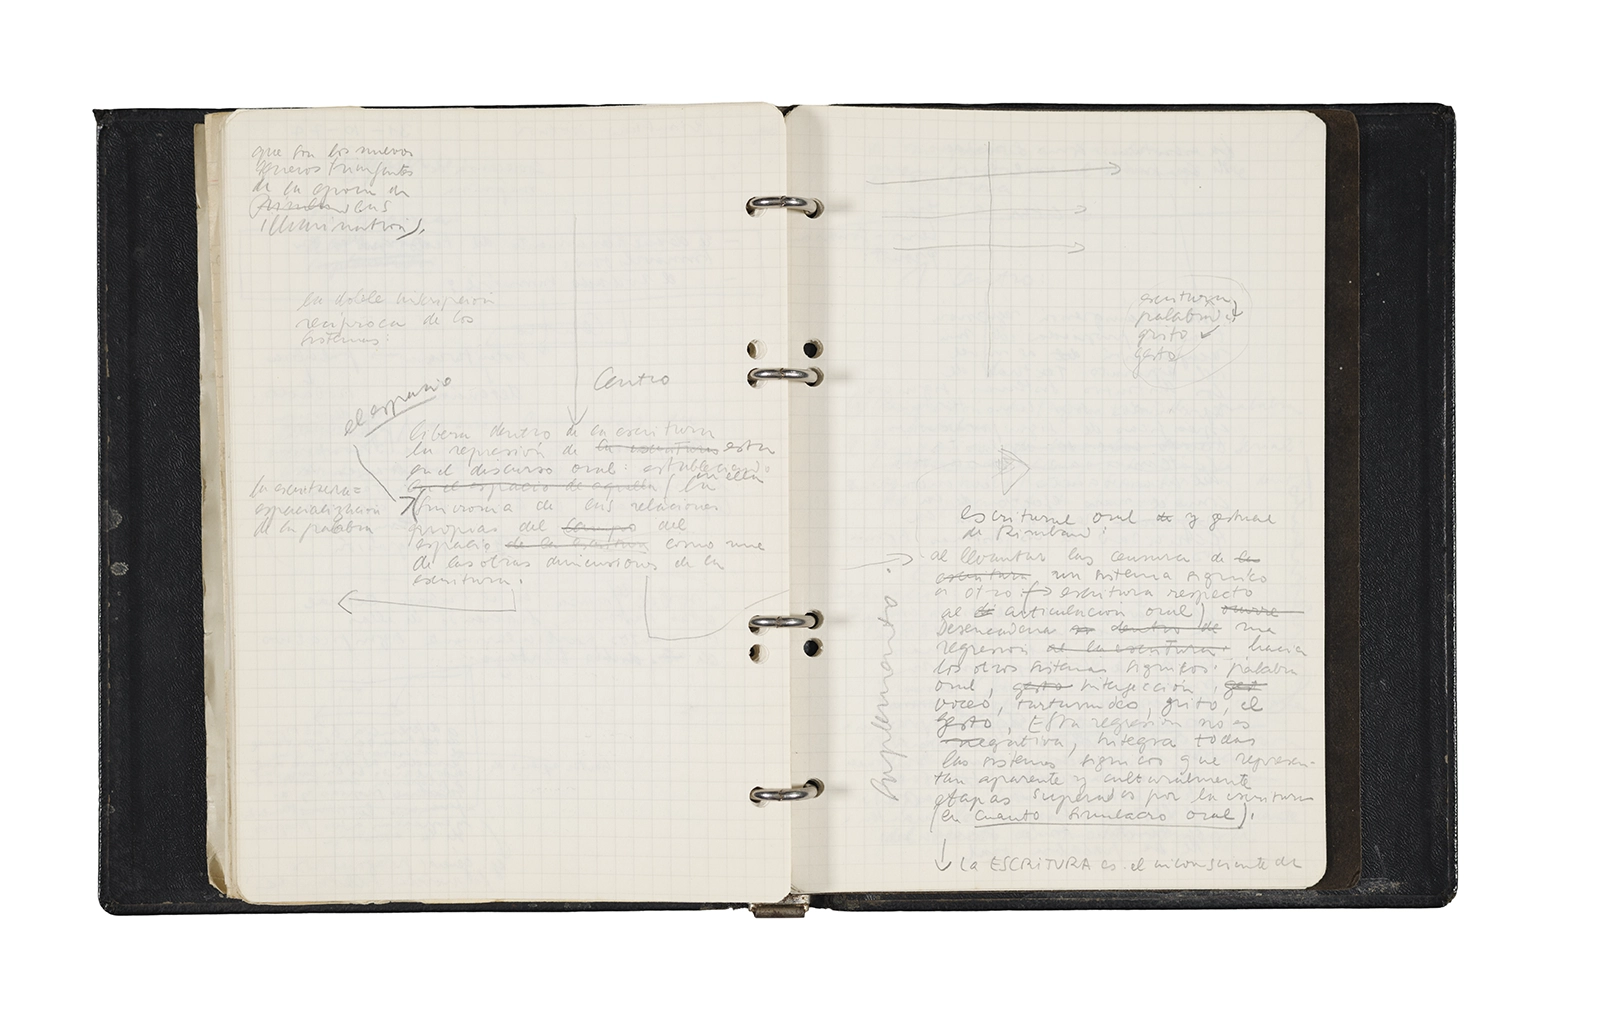 que son los nuevos
géneros triunfantes
de la época de
las
Illuminations).
la doble
recíproca de los
sistemas:
el espacio
Centro
libera dentro de la escritura
la represión de la escritura esta
en el discurso oral: estableciendo
en el espacio de aquella (en ella
la escritura =
espacialización
de la palabra
sincronía de las relaciones
propias del tiempo del
espacio de la escritura como una
de las otras dimensiones de la
escritura.
escritura
palabra
grito
gesto
escritural oral de y gestual
de Rimbaud:
suplemento
al levantar las censura de la
escritura, un sistema sígnico
a otro (→ escritura respecto
al de articulación oral) ocurre
desencadena dentro de una
regresión a la escritura hacia
los otros sistemas sígnicos: palabra
oral, gesto interjección, gest
voceo, tartamudeo, grito, el
gesto. Esta regresión no es
negativa, integra todos
los sistemas sígnicos que represen-
tan aparente y culturalmente
etapas superadas por la escritura
(en cuanto simulacro oral).
↓ La ESCRITURA es el inconsciente de